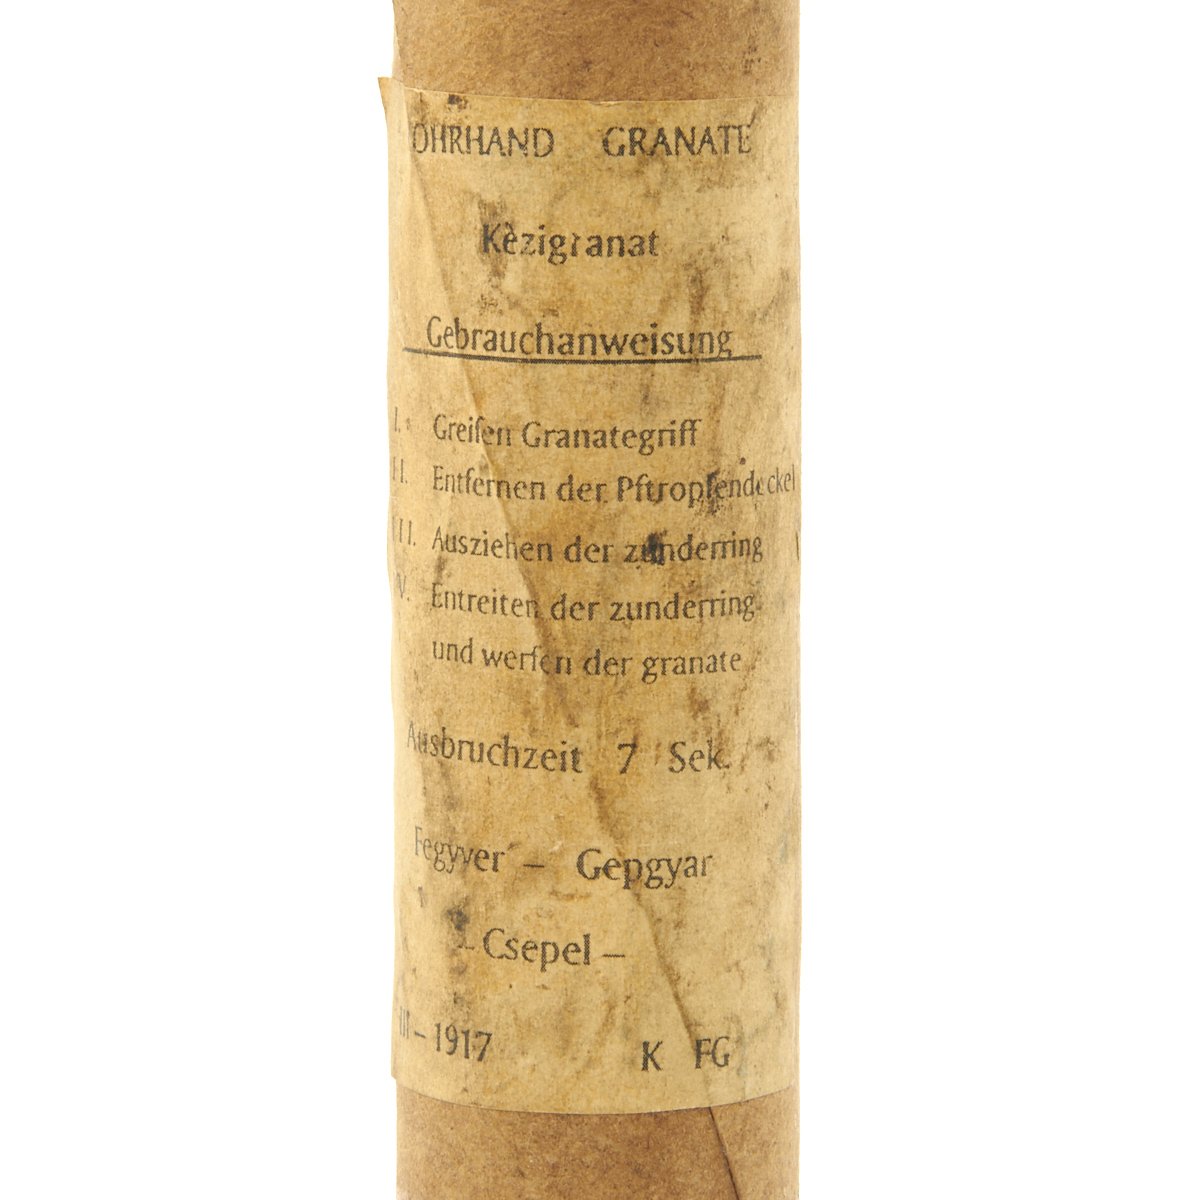 OHRHAND GRANATE
Kèzigranat
Gebrauchanweisung
I. Greifen Granategriff
II. Entfernen der Pftropfendeckel
III. Ausziehen der zunderring
IV. Entreiten der zunderring
und werfen der granate
Ausbruchzeit 7 Sek.
Fegyver – Gepgyar
– Csepel –
III – 1917 K FG